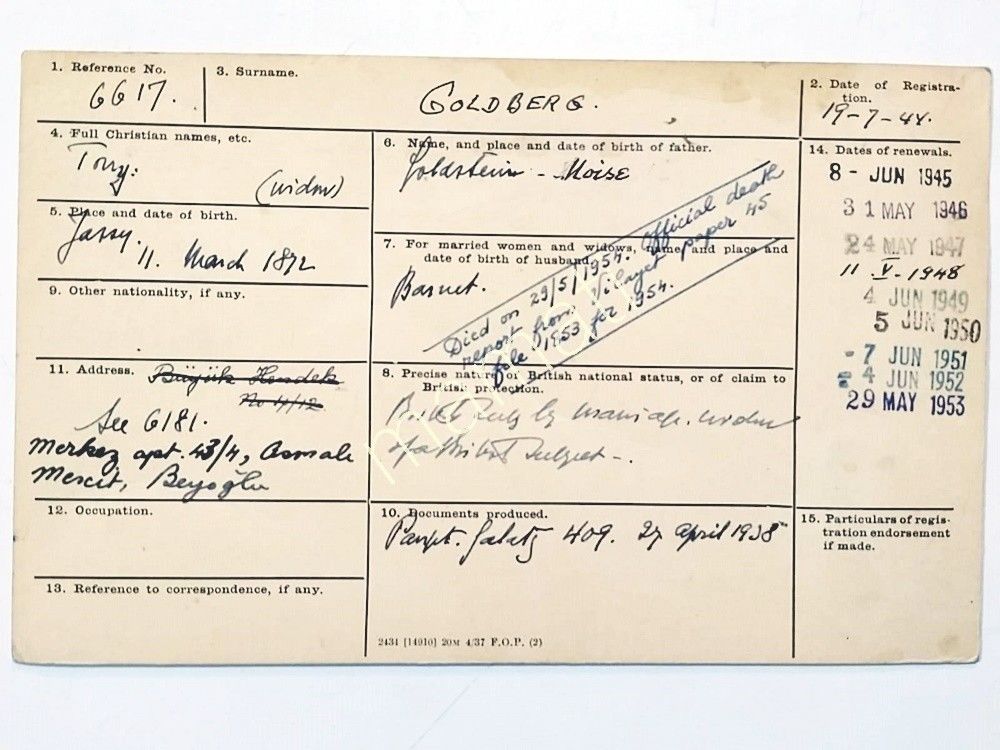 1. Reference No.
6617.
3. Surname.
GOLDBERG.
2. Date of Registra-
tion.
19-7-44.
4. Full Christian names, etc.
Tony.
(widow)
5. Place and date of birth.
Jassy.
11. March 1872
9. Other nationality, if any.
11. Address.
Büyük Hendek
No 4/12
See 6181.
Merkez apt. 43/4, Asmali
Mescit, Beyoğlu
12. Occupation.
13. Reference to correspondence, if any.
6. Name, and place and date of birth of father.
Goldstein - Moise
7. For married women and widows, name and place and
date of birth of husband.
Barnet.
Died on 29/5/1954. Official death
report from Vilayet paper 45
file 1953 for 1954.
8. Precise nature of British national status, or of claim to
British protection.
British Subj by marriage. widow
of a British Subject -.
10. Documents produced.
Passpt. Galatz 409. 27 April 1938
2434 [14910] 20M 4/37 F.O.P. (2)
14. Dates of renewals.
8 - JUN 1945
31 MAY 1946
24 MAY 1947
11 V. 1948
4 JUN 1949
5 JUN 1950
- 7 JUN 1951
- 4 JUN 1952
29 MAY 1953
15. Particulars of regis-
tration endorsement
if made.